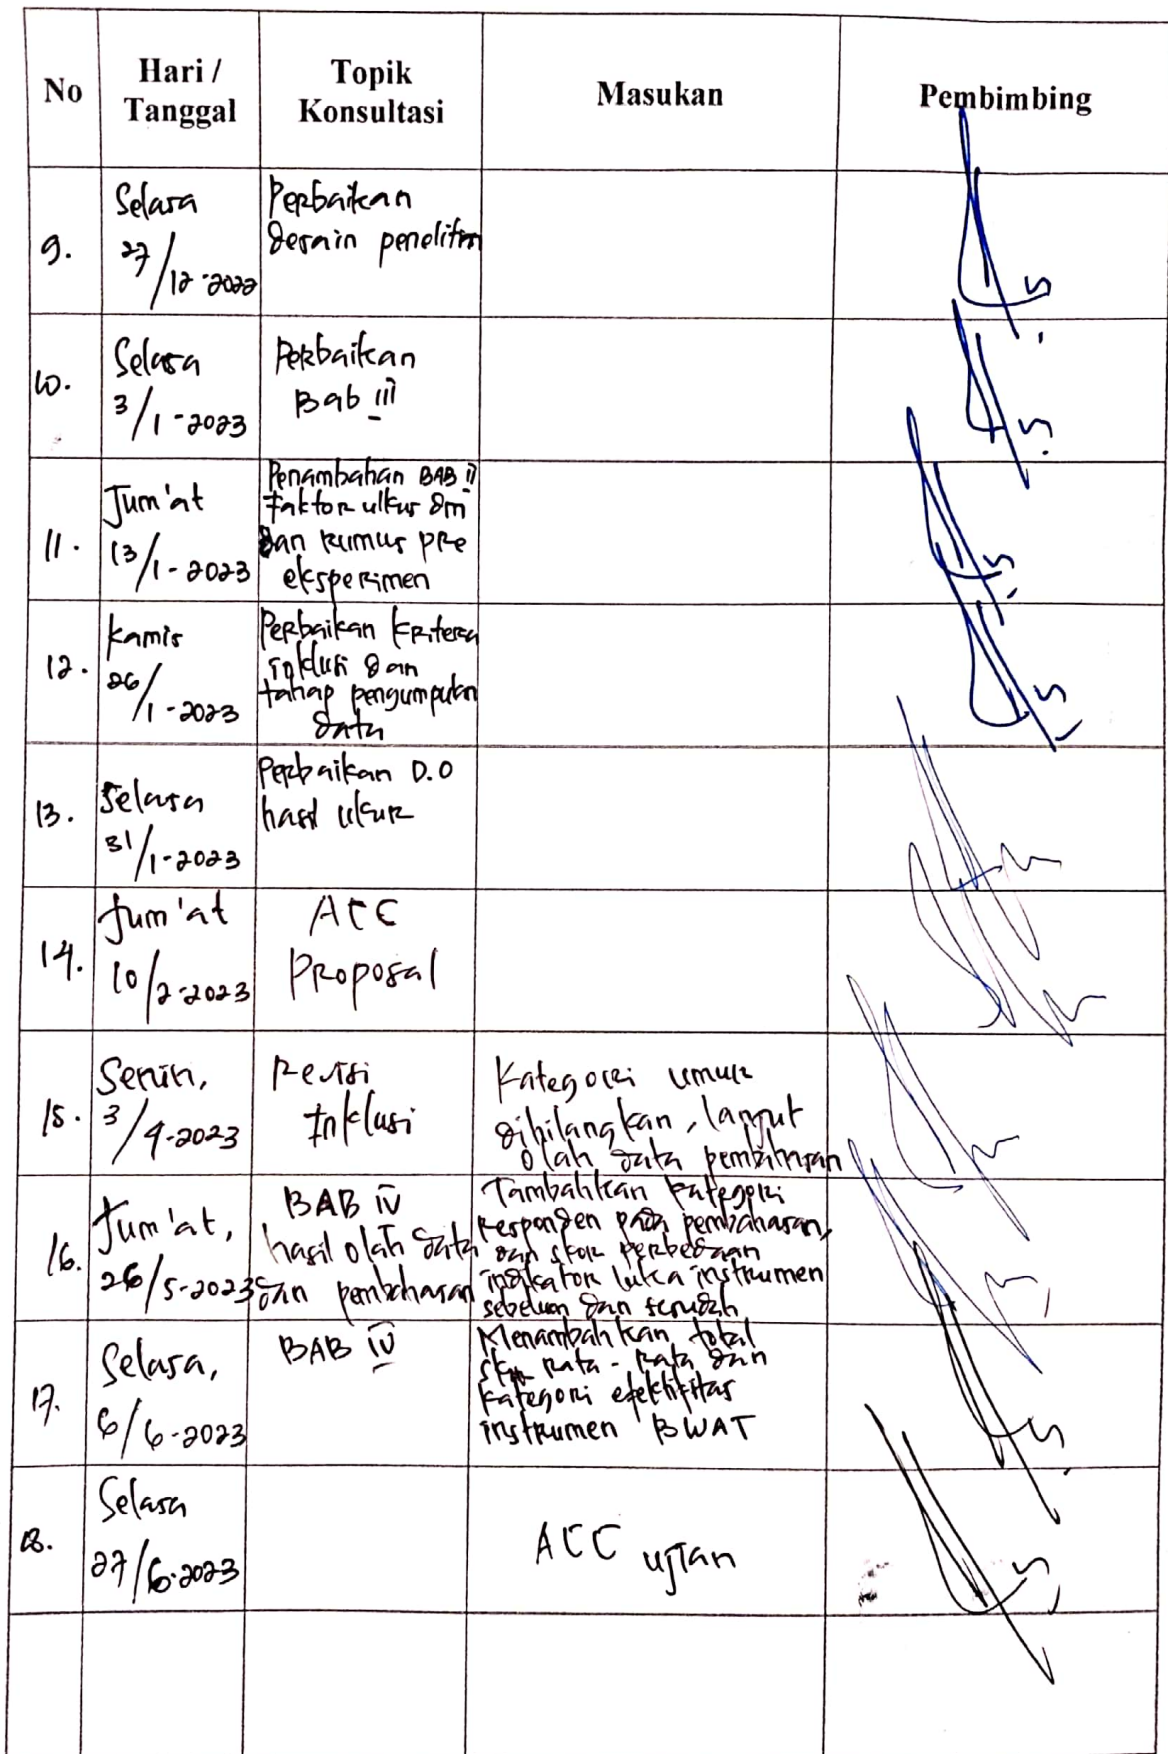 No
Hari /
Tanggal
Topik
Konsultasi
Masukan
Pembimbing
9.
Selasa
27/12-2022
Perbaikan
desain penelitin
10.
Selasa
3/1-2023
Perbaikan
Bab III
11.
Jum'at
13/1-2023
Penambahan BAB II
faktor ulkus dm
dan rumus pre
eksperimen
12.
Kamis
26/1-2023
Perbaikan kriteria
inklusi dan
tahap pengumpulan
data
13.
Selasa
31/1-2023
Perbaikan D.O
hasil ukur
14.
Jum'at
10/2-2023
ACC
Proposal
15.
Senin,
3/4-2023
Revisi
Inklusi
Kategori umur
dihilangkan, lanjut
olah data pembahasan
16.
Jum'at,
26/5-2023
BAB IV
hasil olah data
dan pembahasan
Tambahkan kategori
responden pada pembahasan,
dan skor perbedaan
indikator luka instrumen
sebelum dan sesudah
17.
Selasa,
6/6-2023
BAB IV
Menambahkan total
skor rata-rata dan
kategori efektifitas
instrumen BWAT
18.
Selasa
27/6-2023
ACC ujian